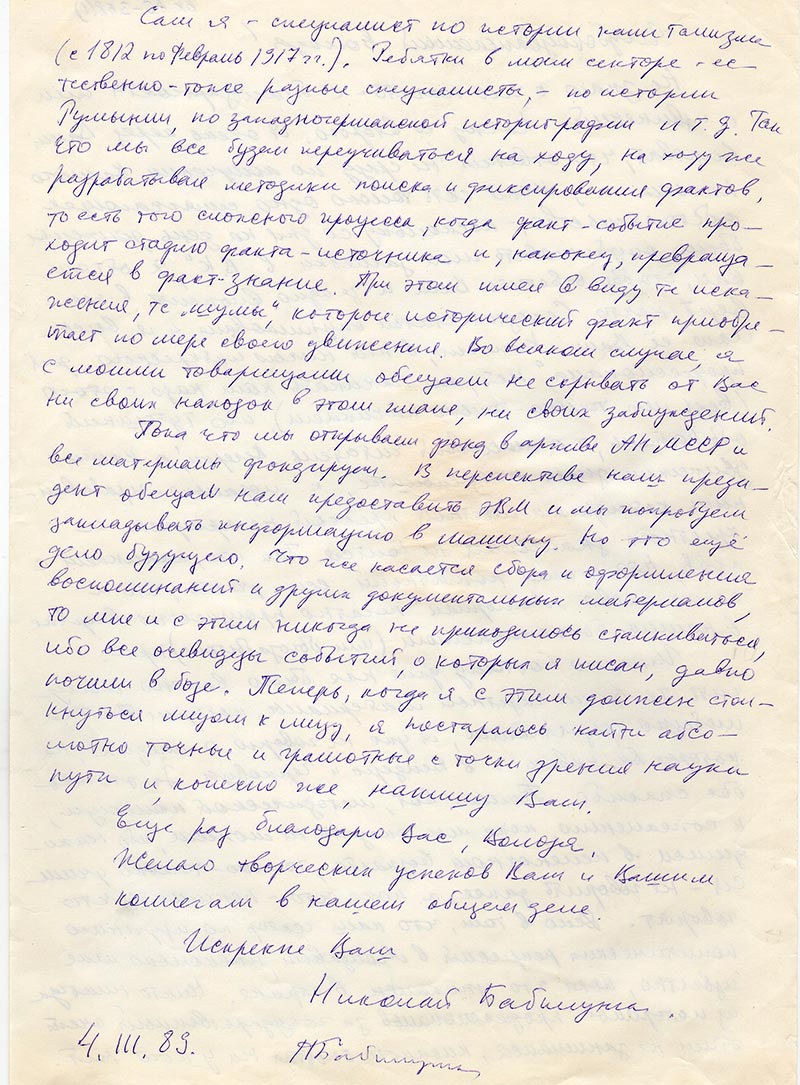 Сам я – специалист по истории капитализма
(с 1812 по февраль 1917 гг.). Ребятки в моем секторе – ес-
тественно – тоже разные специалисты, – по истории
Румынии, по западногерманской историографии и т.д. Так
что мы все будем переучиваться на ходу, на ходу же
разрабатывая методики поиска и фиксирования фактов,
то есть того сложного процесса, когда факт-событие про-
ходит стадию факта-источника и, наконец, превраща-
ется в факт-знание. При этом имея в виду те иска-
жения, те „шумы“, которые исторический факт приобре-
тает по мере своего движения. Во всяком случае, я
с моими товарищами обещаем не скрывать от Вас
ни своих находок в этом плане, ни своих заблуждений.
Пока что мы открываем фонд в архиве АН МССР и
все материалы фондируем. В перспективе наш прези-
дент обещал нам предоставить ЭВМ и мы попробуем
закладывать информацию в машину. Но это ещё
дело будущего. Что же касается сбора и оформления
воспоминаний и других документальных материалов,
то мне и с этим никогда не приходилось сталкиваться,
ибо все очевидцы событий, о которых я писал, давно
почили в бозе. Теперь, когда я с этим должен стол-
кнуться лицом к лицу, я постараюсь найти абсо-
лютно точные и грамотные с точки зрения науки
пути и, конечно же, напишу Вам.
Еще раз благодарю Вас, Володя.
Желаю творческих успехов Вам и Вашим
коллегам в нашем общем деле.
Искренне Ваш
Николай Бабилунга.
4.III.89. НБабилунга